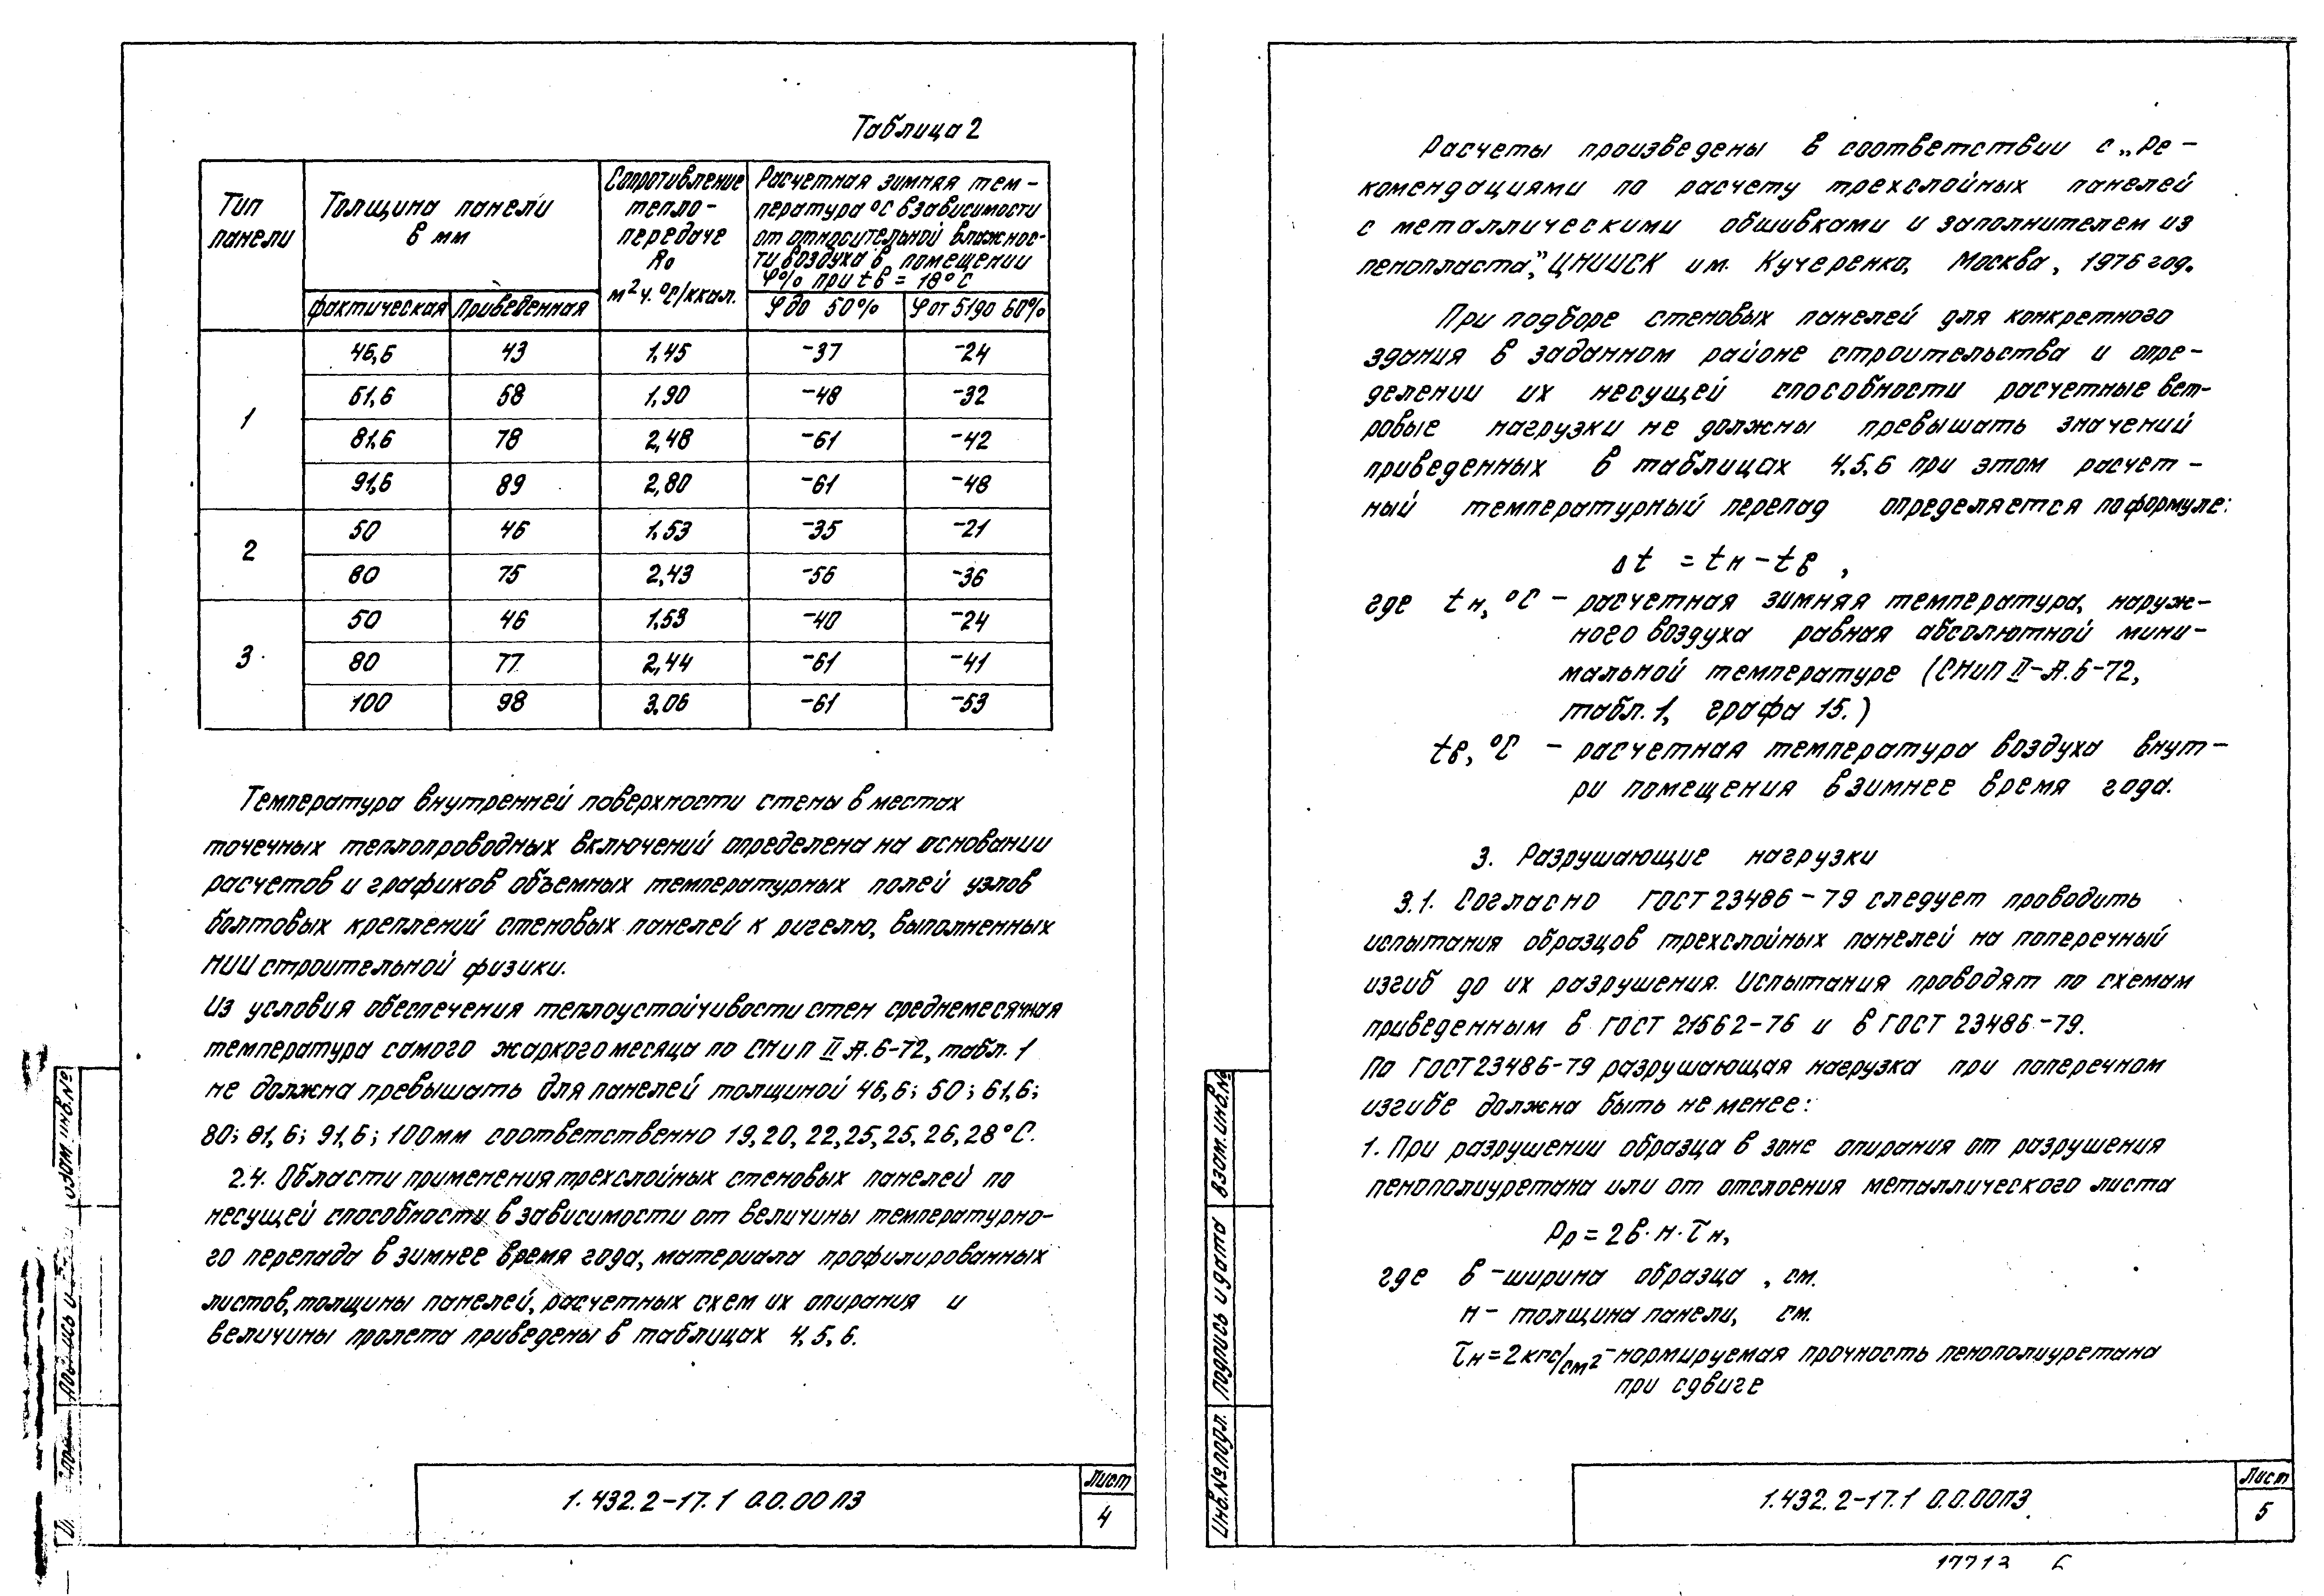 Таблица 2
Тип панели
Толщина панели в мм
Сопротивление тепло-передаче R₀ м²ч.°С/ккал.
Расчетная зимняя тем-
пература °С в зависимости
от относительной влажнос-
ти воздуха в помещении
φ% при tв = 18°С
фактическая приведенная φ до 50% φ от 51 до 60%
1
46,6 43 1,45 -37 -24
61,6 58 1,90 -48 -32
81,6 78 2,48 -61 -42
91,6 89 2,80 -61 -48
2
50 46 1,53 -35 -21
80 75 2,43 -56 -36
3
50 46 1,53 -40 -24
80 77 2,44 -61 -41
100 98 3,06 -61 -53
Температура внутренней поверхности стены в местах
точечных теплопроводных включений определена на основании
расчетов и графиков объемных температурных полей узлов
болтовых креплений стеновых панелей к ригелю, выполненных
НИИ строительной физики.
Из условия обеспечения теплоустойчивости стен среднемесячная
температура самого жаркого месяца по СНиП II А.6-72, табл. 1
не должна превышать для панелей толщиной 46,6; 50; 61,6;
80; 81,6; 91,6; 100мм соответственно 19, 20, 22, 25, 25, 26, 28°С.
2.4. Области применения трехслойных стеновых панелей по
несущей способности в зависимости от величины температурно-
го перепада в зимнее время года, материала профилированных
листов, толщины панелей, расчетных схем их опирания и
величины пролета приведены в таблицах 4, 5, 6.
1.432.2-17.1 0.0.00ПЗ
Лист
4
Расчеты произведены в соответствии с „Ре-
комендациями по расчету трехслойных панелей
с металлическими обшивками и заполнителем из
пенопласта", ЦНИИСК им. Кучеренко, Москва, 1976 год.
При подборе стеновых панелей для конкретного
здания в заданном районе строительства и опре-
делении их несущей способности расчетные вет-
ровые нагрузки не должны превышать значений
приведенных в таблицах 4, 5, 6 при этом расчет-
ный температурный перепад определяется по формуле:
Δt = tн - tв ,
где tн, °С - расчетная зимняя температура, наруж-
ного воздуха равная абсолютной мини-
мальной температуре (СНиП II-А.6-72,
табл. 1, графа 15.)
tв, °С - расчетная температура воздуха внут-
ри помещения в зимнее время года.
3. Разрушающие нагрузки
3.1. Согласно ГОСТ 23486-79 следует проводить
испытания образцов трехслойных панелей на поперечный
изгиб до их разрушения. Испытания проводят по схемам
приведенным в ГОСТ 21562-76 и в ГОСТ 23486-79.
По ГОСТ 23486-79 разрушающая нагрузка при поперечном
изгибе должна быть не менее:
1. При разрушении образца в зоне опирания от разрушения
пенополиуретана или от отслоения металлического листа
Рр = 2в·н·τн,
где в - ширина образца, см.
н - толщина панели, см.
τн = 2кгс/см² - нормируемая прочность пенополиуретана
при сдвиге
1.432.2-17.1 0.0.00ПЗ
Лист
5
Взам. инв. №
Подпись и дата
Инв. № подл.
17713